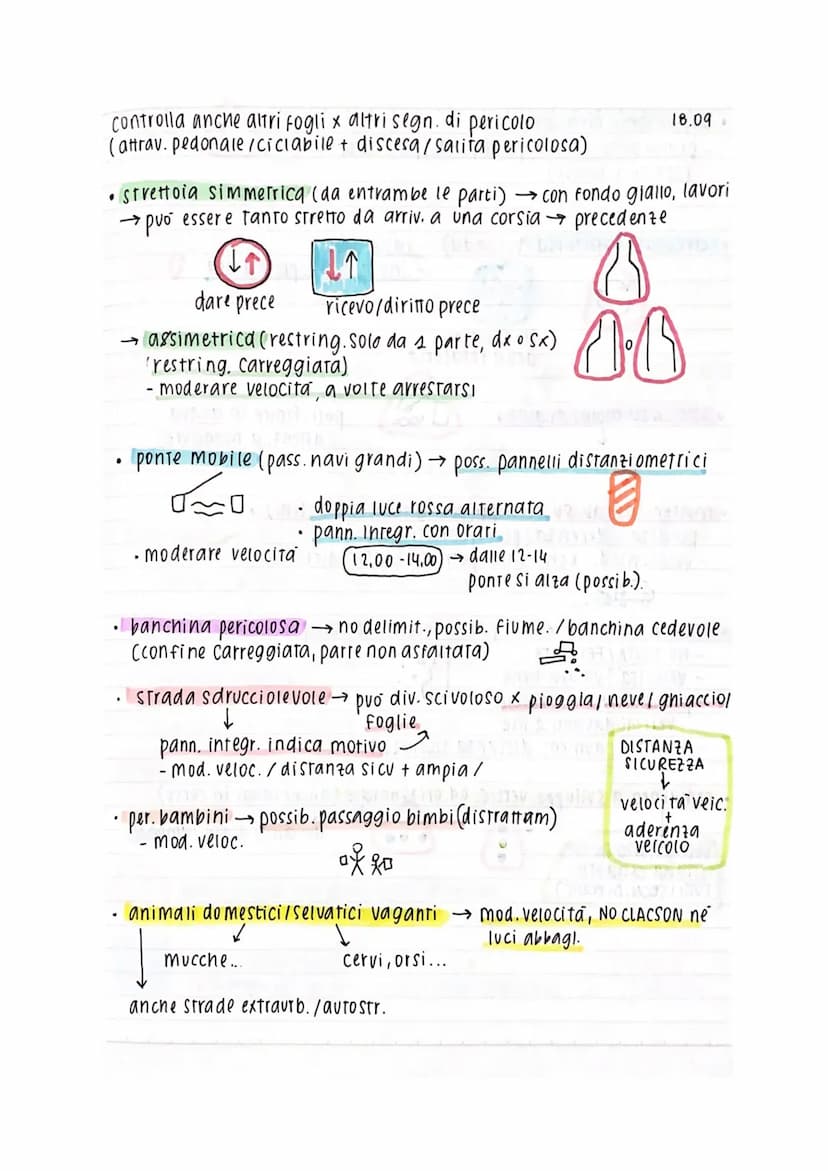 controlla anche altri fogli x altri segn. di pericolo 18.09
(attrav. pedonale/ciclabile + discesa/salita pericolosa)
• strettoia simmetrica (da entrambe le parti) → con fondo giallo, lavori
→ può essere tanto stretto da arriv. a una corsia → precedenze
↓↑ ↓↑
dare prece ricevo/diritto prece
→ assimetrica (restring. solo da 1 parte, dx o sx)
o
'restring. carreggiata)
- moderare velocità, a volte arrestarsi
• ponte mobile (pass. navi grandi) → poss. pannelli distanziometrici
• doppia luce rossa alternata
• pann. integr. con orari
• moderare velocità 12,00 - 14,00 → dalle 12-14
ponte si alza (possib.).
• banchina pericolosa → no delimit., possib. fiume. / banchina cedevole
(confine carreggiata, parte non asfaltata)
• strada sdrucciolevole → può div. scivoloso x pioggia/neve/ghiaccio/
foglie
pann. integr. indica motivo
- mod. veloc. / distanza sicu + ampia /
DISTANZA
SICUREZZA
↓
velocità veic.
+
aderenza
veicolo
• per. bambini → possib. passaggio bimbi (distrattam)
- mod. veloc.
• animali domestici/selvatici vaganti → mod. velocità, NO CLACSON né
luci abbagl.
mucche.. cervi, orsi...
anche strade extraurb. / autostr.